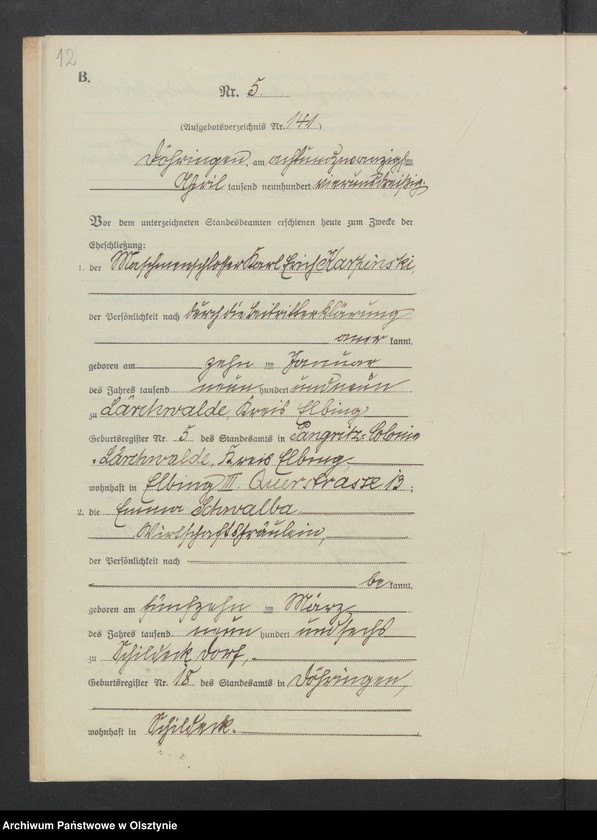 12
B.
Nr. 5.
(Aufgebotsverzeichnis Nr. 141)
Döhringen, am achtundzwanzigsten
April tausend neunhundert vierunddreißig.
Vor dem unterzeichneten Standesbeamten erschienen heute zum Zwecke der
Eheschließung:
1. der Maschinenschlosser Karl Erich Karpinski,
der Persönlichkeit nach durch die Beitritterklärung
aner kannt,
geboren am zehn ten Januar
des Jahres tausend neun hundert und neun
zu Lärchwalde, Kreis Elbing
Geburtsregister Nr. 5 des Standesamts in Pangritz-Colonie
-Lärchwalde, Kreis Elbing,
wohnhaft in Elbing III. Querstrasse 13;
2. die Emma Schwalba
Wirtschaftsfräulein,
der Persönlichkeit nach
be kannt,
geboren am fünfzehn ten März
des Jahres tausend neun hundert und sechs
zu Schildeck Dorf,
Geburtsregister Nr. 18 des Standesamts in Döhringen,
wohnhaft in Schildeck.
Archiwum Państwowe w Olsztynie